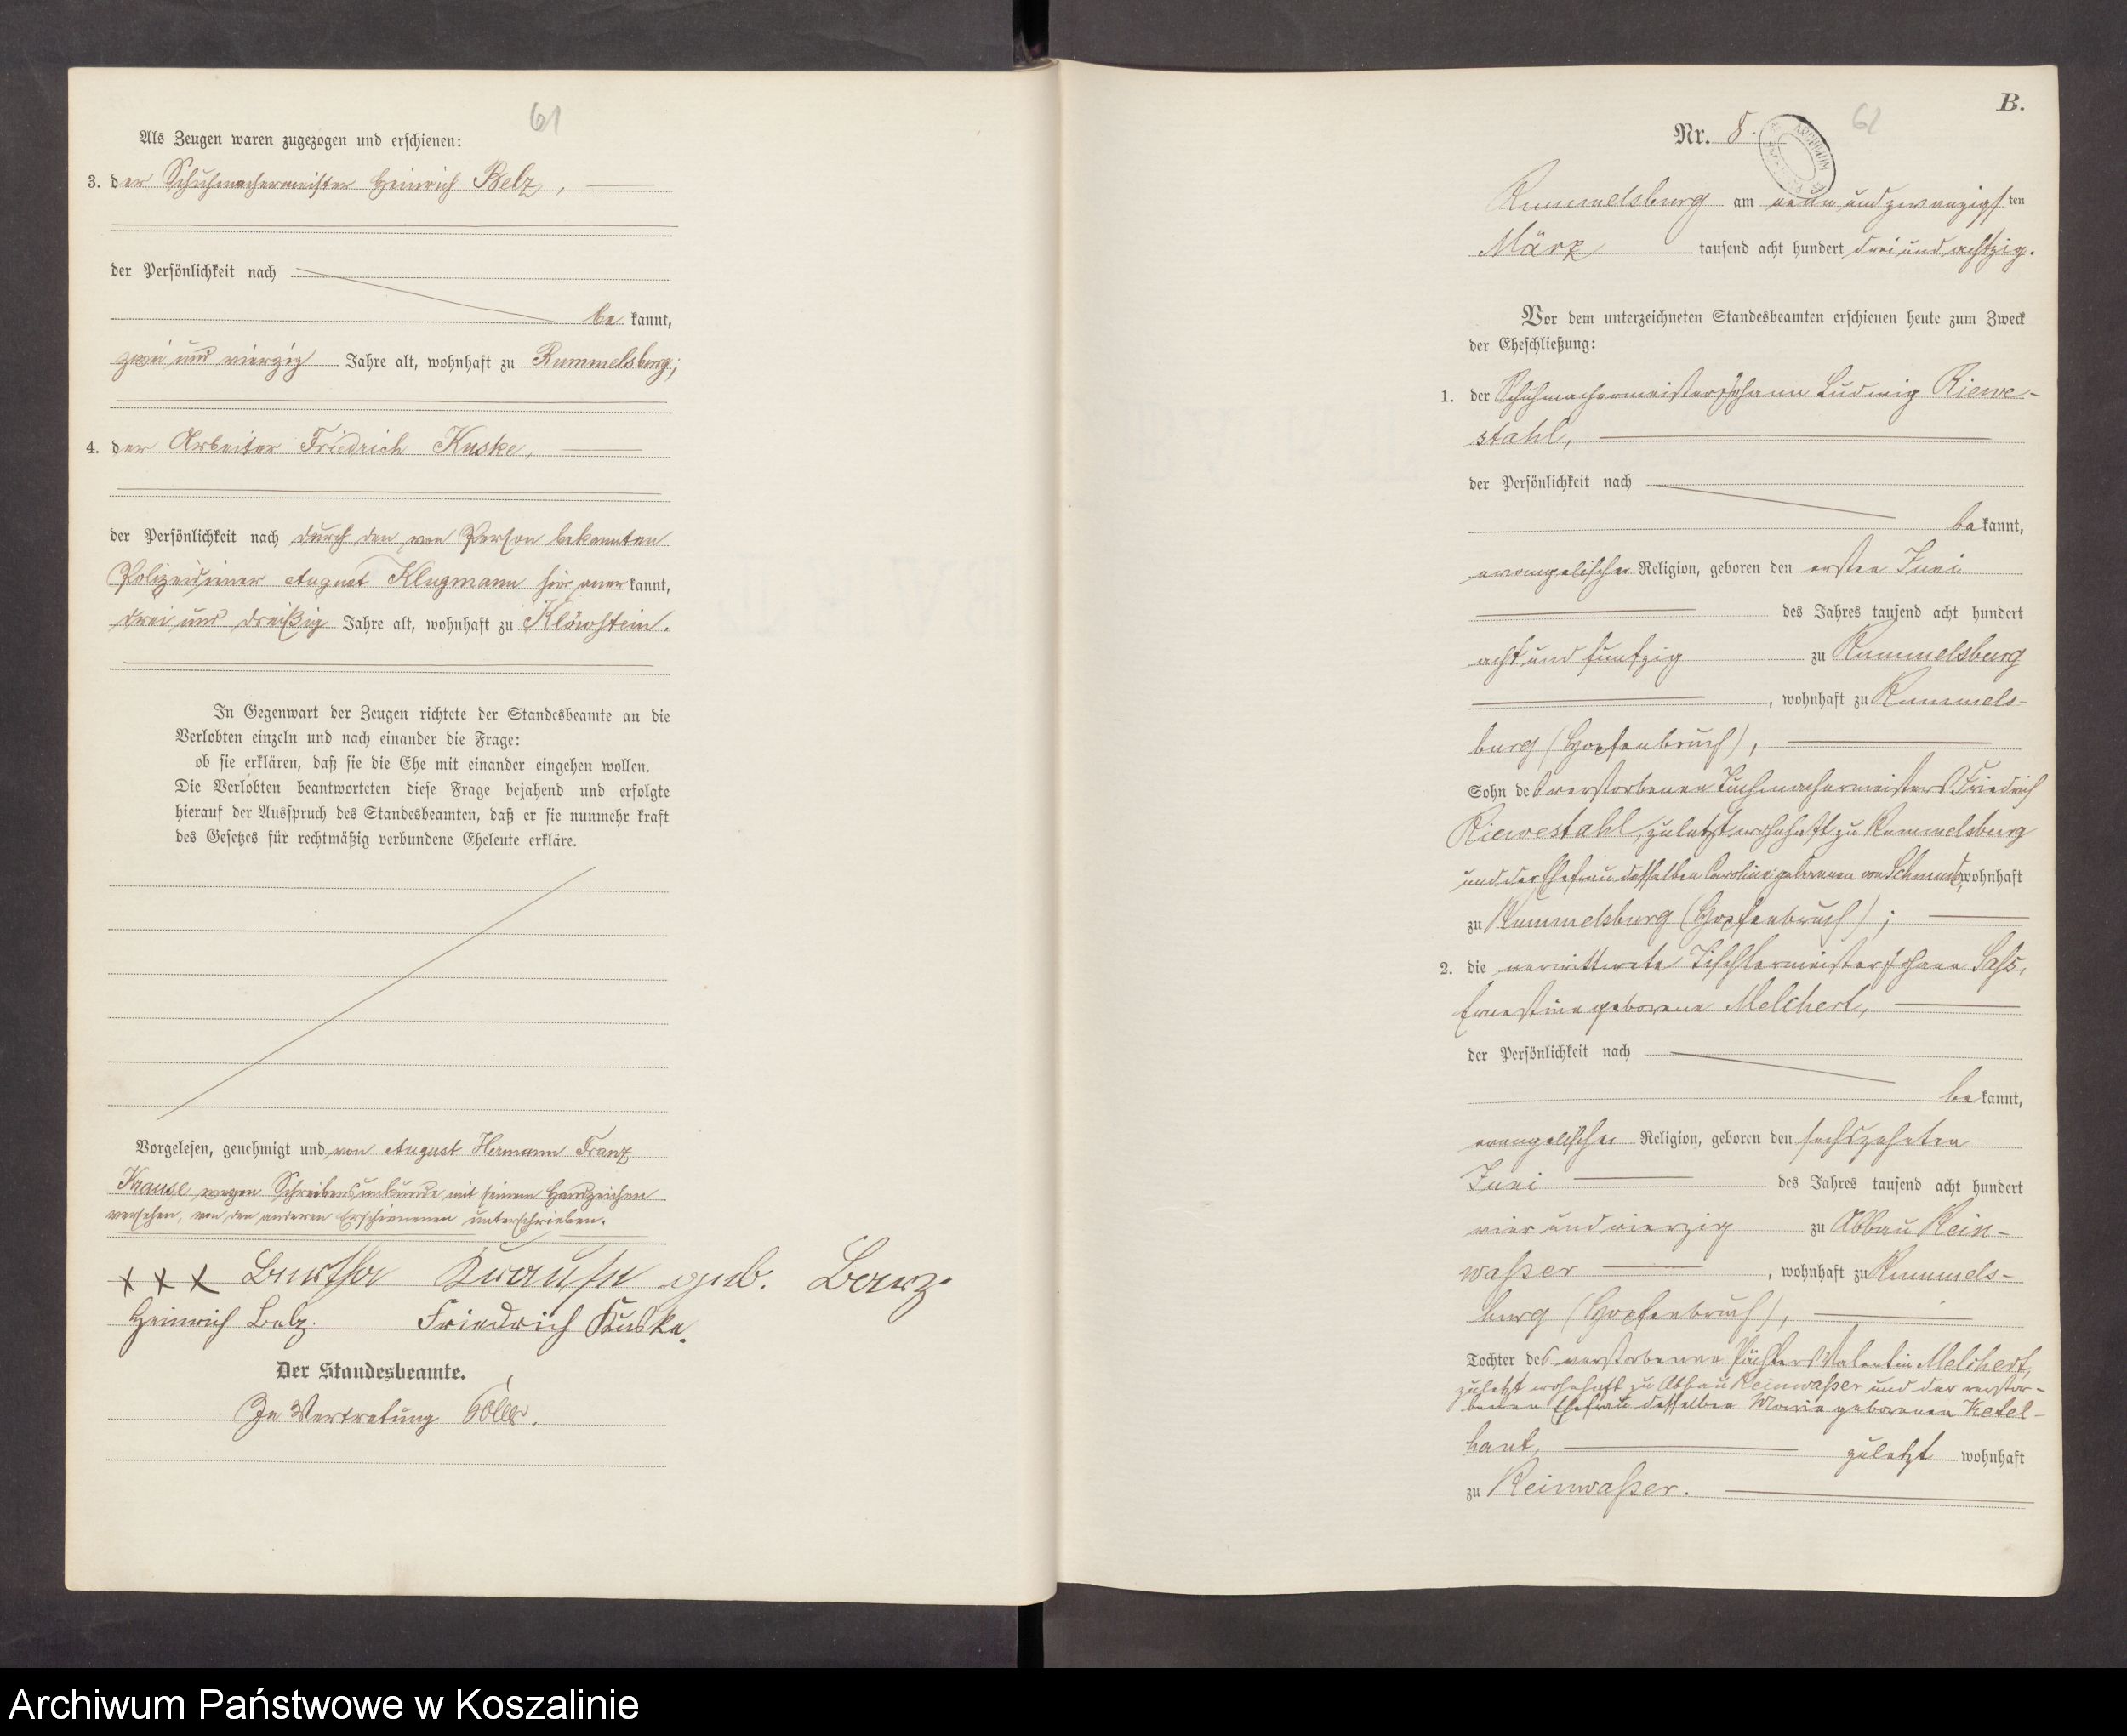 61
Als Zeugen waren zugezogen und erschienen:
3. der Schuhmachermeister Heinrich Belz,
der Persönlichkeit nach
be kannt,
zwei und vierzig Jahre alt, wohnhaft zu Rummelsburg;
4. der Arbeiter Friedrich Kuske,
der Persönlichkeit nach durch den von Person bekannten
Polizeidiener August Klugmann hier anerkannt,
drei und dreißig Jahre alt, wohnhaft zu Klöwstein.
In Gegenwart der Zeugen richtete der Standesbeamte an die
Verlobten einzeln und nach einander die Frage:
ob sie erklären, daß sie die Ehe mit einander eingehen wollen.
Die Verlobten beantworteten diese Frage bejahend und erfolgte
hierauf der Ausspruch des Standesbeamten, daß er sie nunmehr kraft
des Gesetzes für rechtmäßig verbundene Eheleute erkläre.
Vorgelesen, genehmigt und von August Hermann Franz
Krause wegen Schreibensunkunde mit seinem Handzeichen
versehen, von den anderen Erschienenen unterschrieben.
x x x Bertha Krause geb. Barz.
Heinrich Belz. Friedrich Kuske.
Der Standesbeamte.
In Vertretung
B.
Nr. 8.
62
ARCHIWUM
Rummelsburg am neun und zwanzigsten
März tausend acht hundert drei und achtzig.
Vor dem unterzeichneten Standesbeamten erschienen heute zum Zweck
der Eheschließung:
1. der Schuhmachermeister Johann Ludwig Riewe-
stahl,
der Persönlichkeit nach
bekannt,
evangelischer Religion, geboren den ersten Juni
des Jahres tausend acht hundert
acht und funfzig zu Rummelsburg
, wohnhaft zu Rummels-
burg (Hopfenbruch),
Sohn des verstorbenen Tuchmachermeisters Friedrich
Riewestahl, zuletzt wohnhaft zu Rummelsburg
und der Ehefrau desselben Caroline geborenen von Schmude, wohnhaft
zu Rummelsburg (Hopfenbruch);
2. die verwittwete Tischlermeister Johann Saß,
Ernestine geborene Melchert,
der Persönlichkeit nach
bekannt,
evangelischer Religion, geboren den sechszehnten
Juni des Jahres tausend acht hundert
vier und vierzig zu Abbau Rein-
waßer, wohnhaft zu Rummels-
burg (Hopfenbruch),
Tochter des verstorbenen Pächters Valentin Melchert,
zuletzt wohnhaft zu Abbau Reinwaßer und der verstor-
benen Ehefrau desselben Marie geborenen Ketel-
haut, zuletzt wohnhaft
zu Reinwaßer.
Archiwum Państwowe w Koszalinie